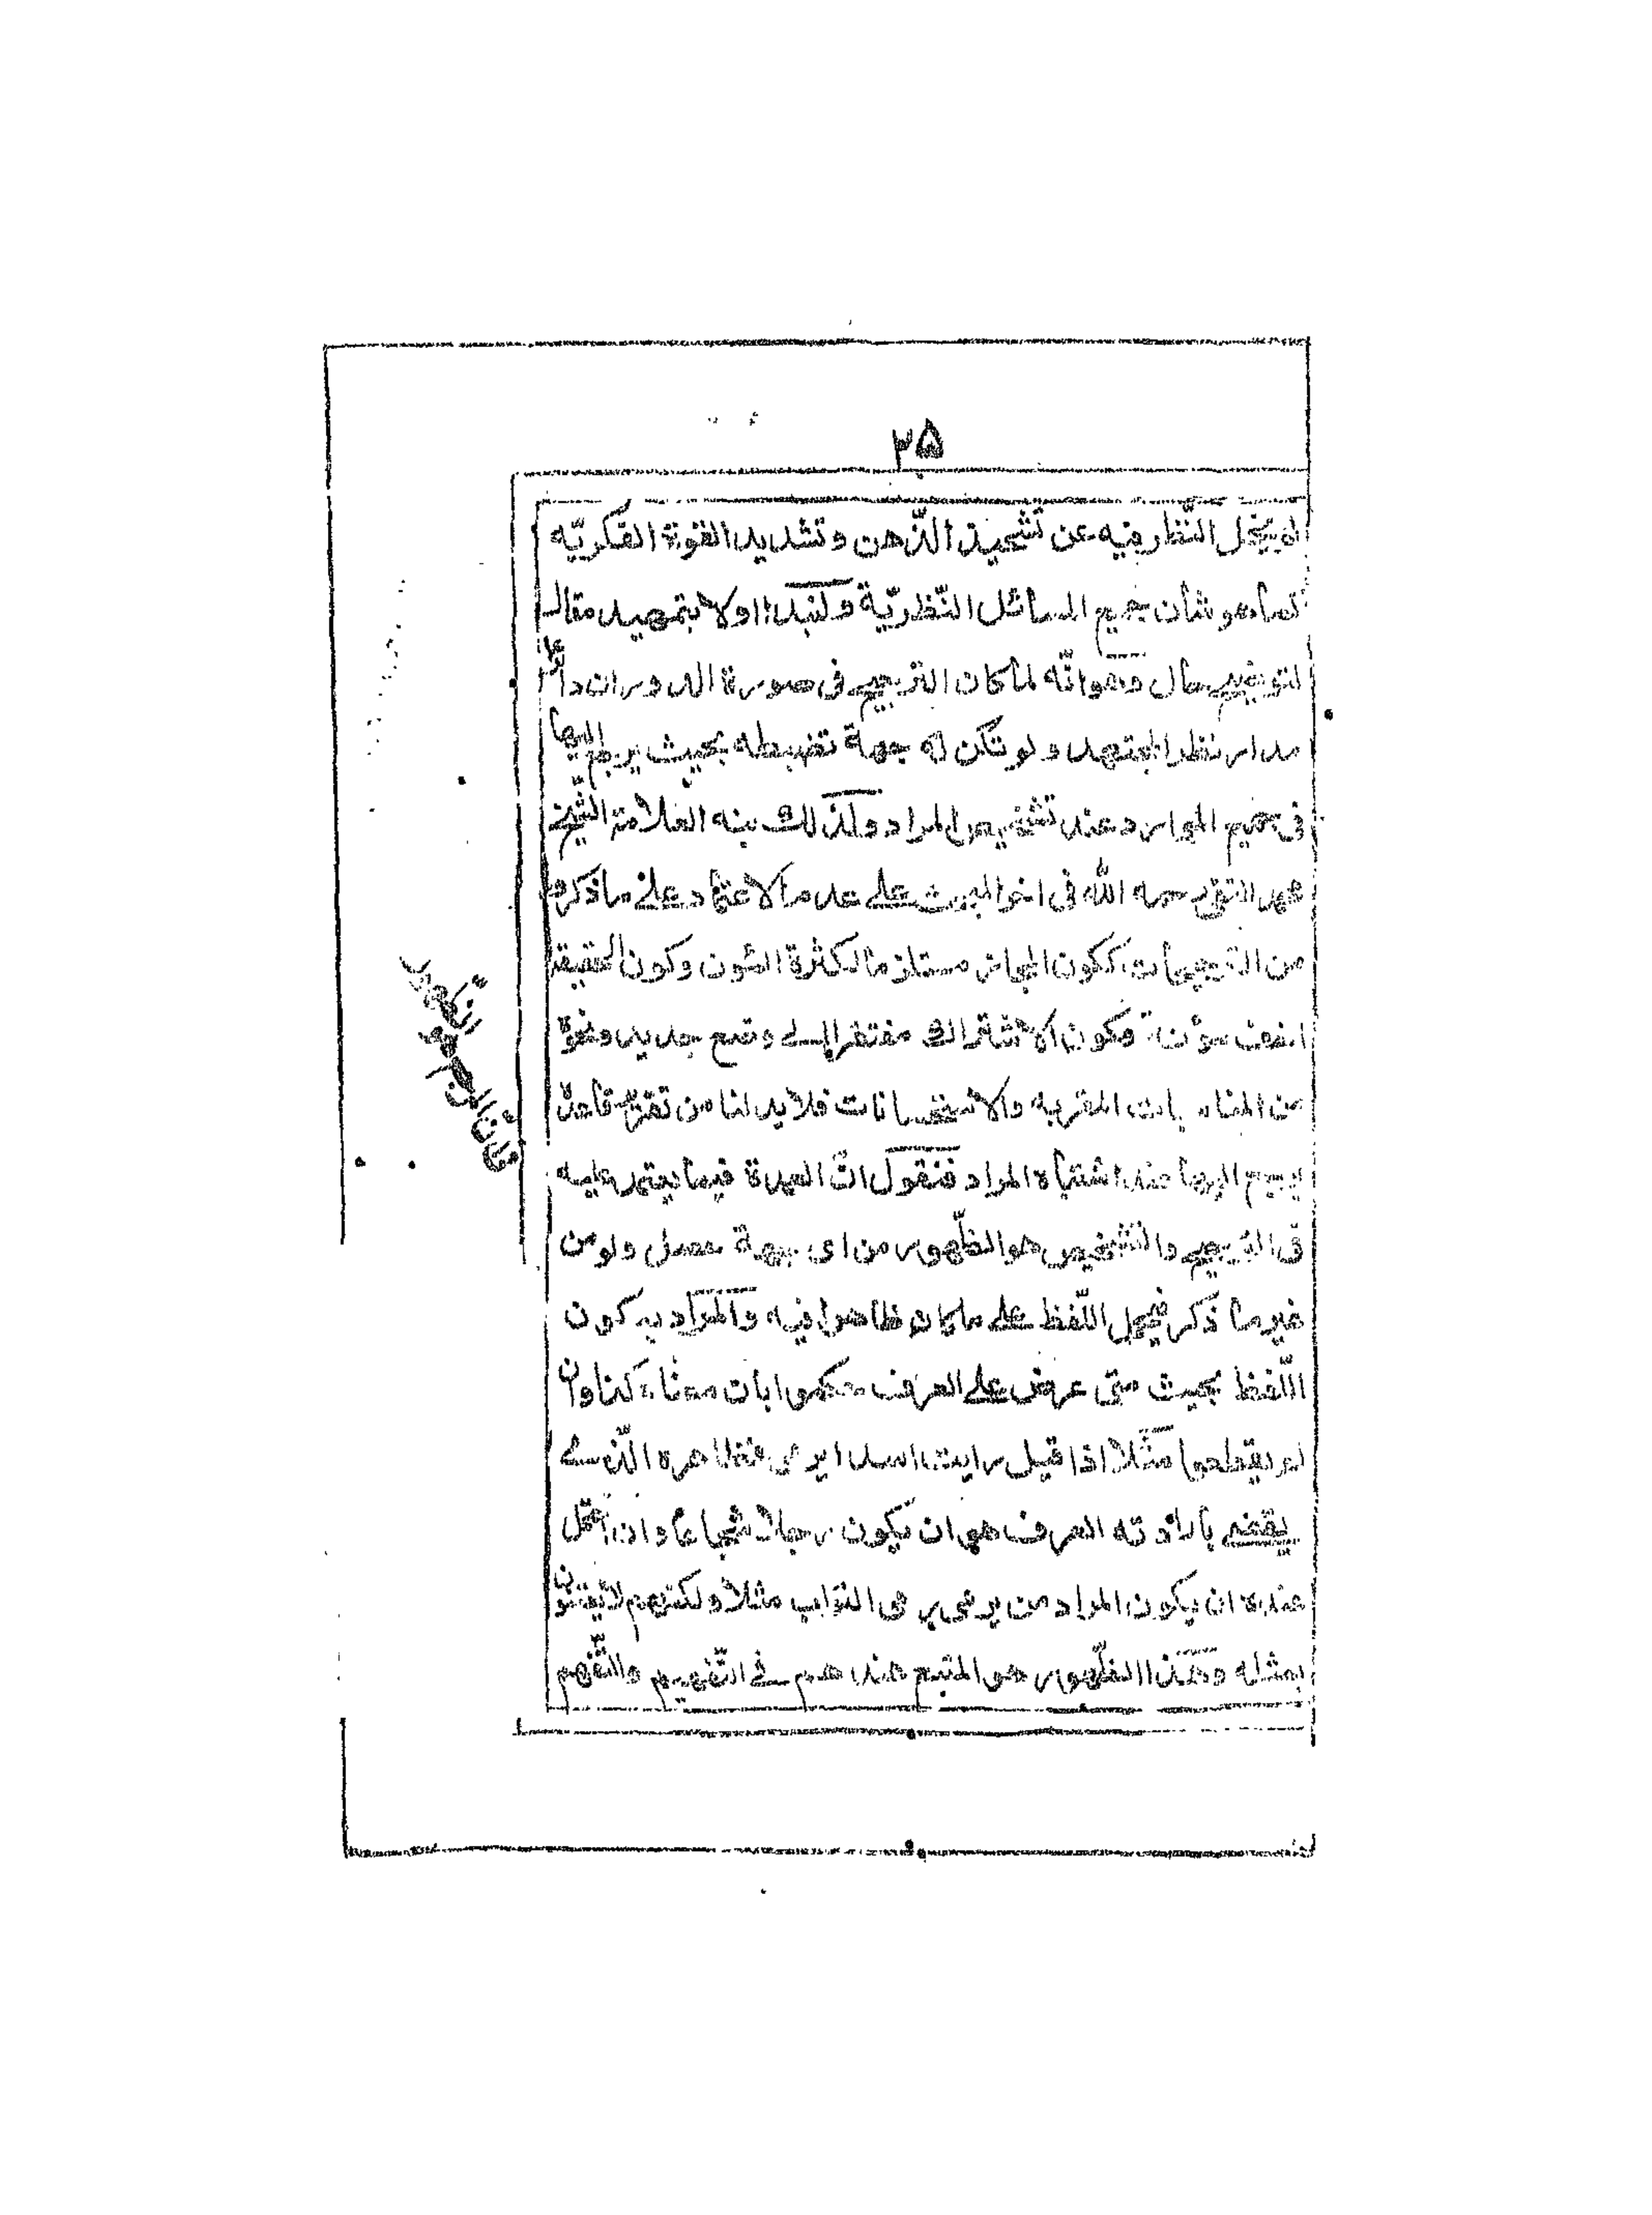 ٢٥
النظر فيه عن تشحيذ الذّهن وتشديد القوة الفكريّه
كما هو شأن جميع المسائل النّظريّة ولنبدا اولا بتمهيد مقال
لتوضيح حال وهو انّه لما كان الترجيح فى صورة الدوران دائرا
مدار نظر المجتهد ولم تكن له جهة تضبطه بحيث يرجع اليها
فى جميع الموارد عند تشخيص المراد ولذلك نبه العلامة الشيخ
محمد التقى رحمه الله فى اخر المبحث على عدم الاعتماد على ما ذكره
من الترجيحات ككون المجاز مستلزما لكثرة المئون وكون الحقيقة
اخف مؤنة وكون الاشتراك مفتقرا الى وضع جديد ونحوه
من المناسبات المقربه والاستحسانات فلا بد لنا من قاعدة
يرجع اليها عند اشتباه المراد فنقول انّ العمدة فيما يعتمد عليه
فى الترجيح والتشخيص هو الظّهور من اى جهة حصل ولو من
غير ما ذكر فيحمل اللّفظ على ما كان ظاهرا فيه والمراد به كون
اللّفظ بحيث متى عرض على العرف حكموا بان معناه كذا وان
لم يقطعوا مثلا اذا قيل رايت اسدا يرمى فظاهره الّذى
يقضى بارادته العرف هو ان يكون رجلا شجاعا وان احتمل
عنده ان يكون المراد من يرمى رمى التراب مثلا ولكنهم لا يعتنون
بمثله وهذا الظّهور هو المتبع عندهم فى التّفهيم والتّفهم